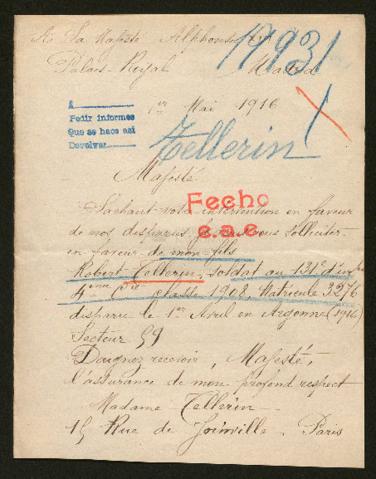 A Sa Majesté Alphonse
19931
Palais-Royal Madrid
1er Mai 1916
A
Pedir informes
Que se hace así
Devolver
Tellerin
Majesté
Fecho
Sachant votre intervention en faveur
de nos disparus, je vous solliciter
en faveur de mon fils
Robert Tellerin, soldat au 131e d'inf
4ème Cie classe 1908, Matricule 3276
disparu le 1er Avril en Argonne (1916)
Secteur 59
Daignez recevoir, Majesté,
l'assurance de mon profond respect
Madame Tellerin
15 Rue de Joinville. Paris